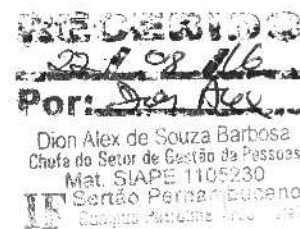 RECEBIDO
22 / 08 / 16
Por: Dion Alex
Dion Alex de Souza Barbosa
Chefe do Setor de Gestão de Pessoas
Mat. SIAPE 1105230
IF Sertão Pernambucano
Campus Petrolina